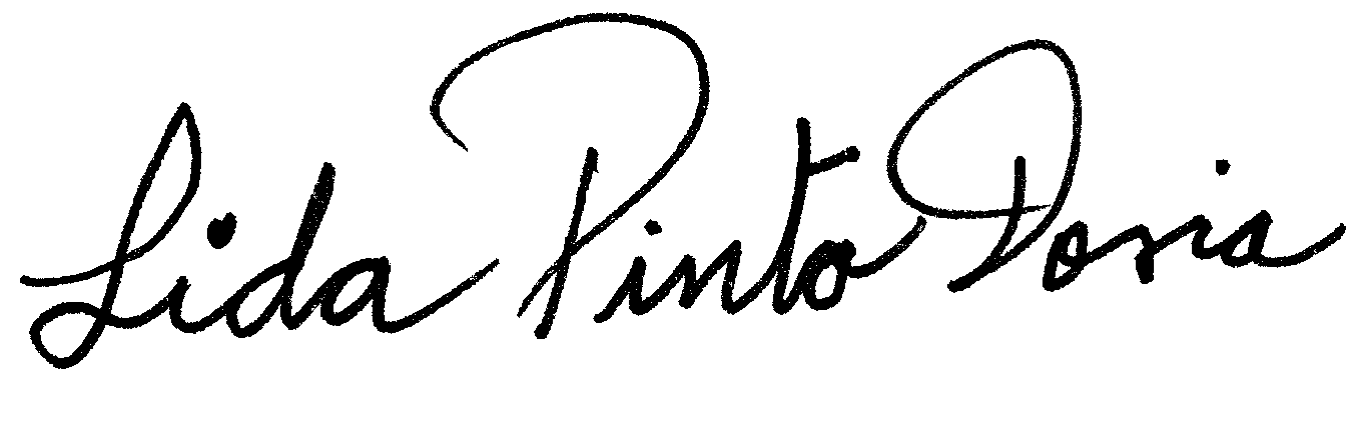 Lida Pinto Doria